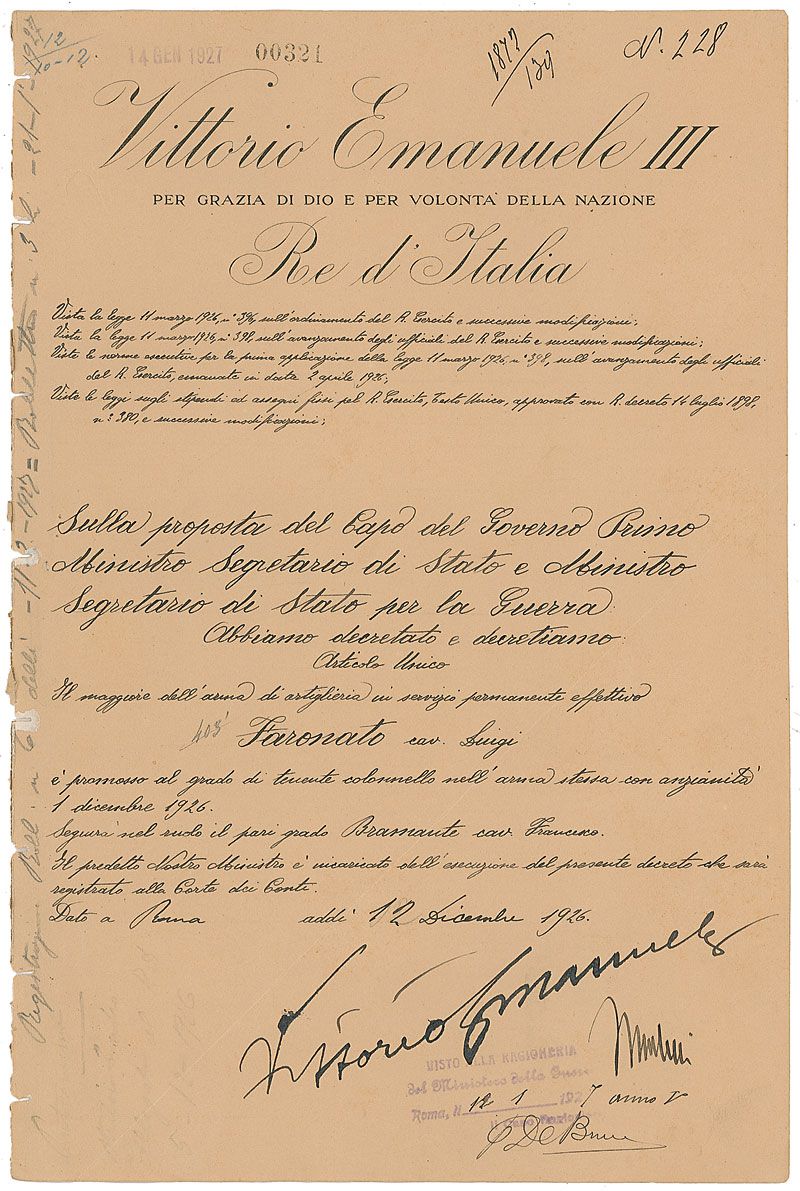 14 GEN 1927
00321
1877/139
N. 228
Vittorio Emanuele III
PER GRAZIA DI DIO E PER VOLONTA' DELLA NAZIONE
Re d'Italia
Vista la legge 11 marzo 1926, n° 396, sull'ordinamento del R. Esercito e successive modificazioni;
Vista la legge 11 marzo 1926, n° 398, sull'avanzamento degli ufficiali del R. Esercito e successive modificazioni;
Viste le norme esecutive per la prima applicazione della legge 11 marzo 1926, n° 398, sull'avanzamento degli ufficiali
del R. Esercito, emanate in data 2 aprile 1926;
Viste le leggi sugli stipendi ed assegni fissi pel R. Esercito, Testo Unico, approvato con R. decreto 14 luglio 1898,
n: 380, e successive modificazioni;
Sulla proposta del Capo del Governo Primo
Ministro Segretario di Stato e Ministro
Segretario di Stato per la Guerra:
Abbiamo decretato e decretiamo:
Articolo Unico
Il maggiore dell'arma di artiglieria in servizio permanente effettivo
403
Faronato cav. Luigi
è promosso al grado di tenente colonnello nell'arma stessa con anzianità
1 dicembre 1926.
Seguirà nel ruolo il pari grado Bramante cav. Francesco.
Il predetto Nostro Ministro è incaricato dell'esecuzione del presente decreto che sarà
registrato alla Corte dei Conti.
Dato a Roma addì 12 Dicembre 1926.
Vittorio Emanuele
Mussolini
VISTO ALLA RAGIONERIA
del Ministero della Guerra
Roma, li 12 1 1927 anno V